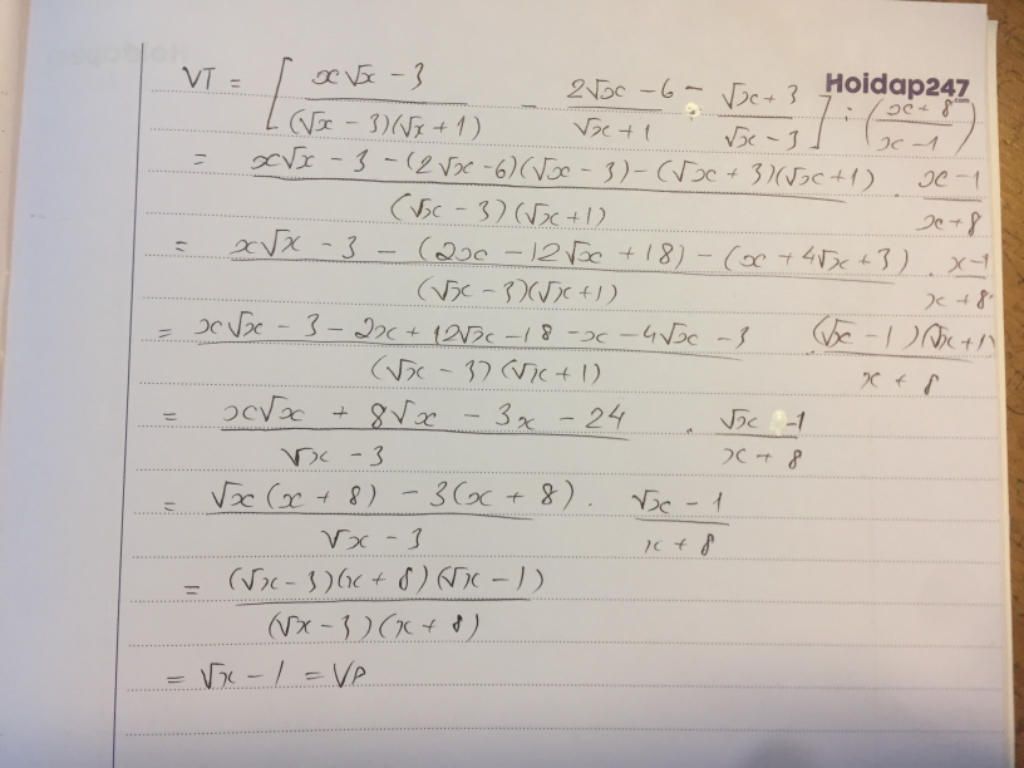 Hoidap247
.com
VT = [ (x√x - 3)/((√x - 3)(√x + 1)) - (2√x - 6)/(√x + 1) - (√x + 3)/(√x - 3) ] : ( (x + 8)/(x - 1) )
= (x√x - 3 - (2√x - 6)(√x - 3) - (√x + 3)(√x + 1))/((√x - 3)(√x + 1)) . (x - 1)/(x + 8)
= (x√x - 3 - (2x - 12√x + 18) - (x + 4√x + 3))/((√x - 3)(√x + 1)) . (x - 1)/(x + 8)
= (x√x - 3 - 2x + 12√x - 18 - x - 4√x - 3)/((√x - 3)(√x + 1)) . ((√x - 1)(√x + 1))/(x + 8)
= (x√x + 8√x - 3x - 24)/(√x - 3) . (√x - 1)/(x + 8)
= (√x(x + 8) - 3(x + 8))/(√x - 3) . (√x - 1)/(x + 8)
= ((√x - 3)(x + 8)(√x - 1))/((√x - 3)(x + 8))
= √x - 1 = VP